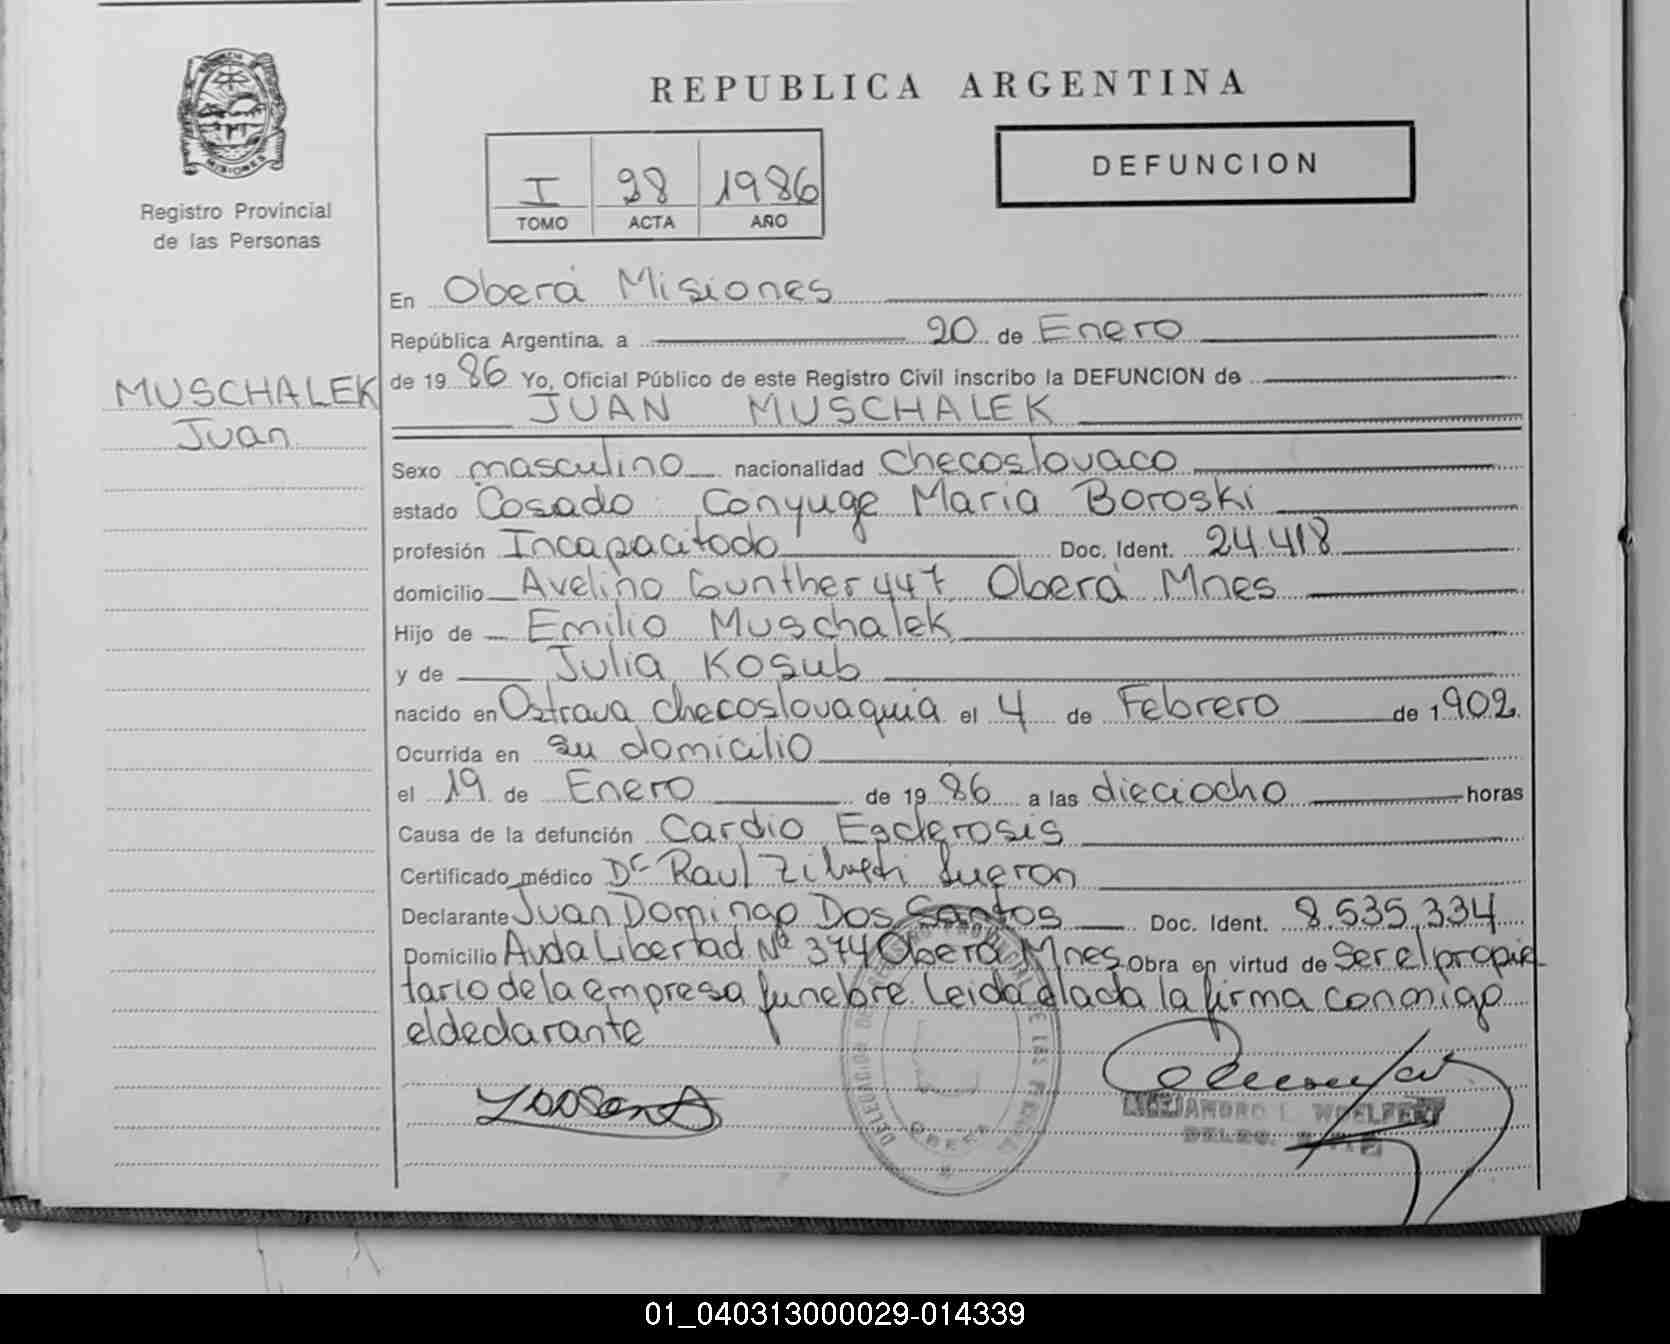 REPUBLICA ARGENTINA
DEFUNCION
I 38 1986
TOMO ACTA AÑO
MISIONES
Registro Provincial
de las Personas
MUSCHALEK
Juan
En Oberá Misiones
República Argentina, a 20 de Enero
de 1986 Yo, Oficial Público de este Registro Civil inscribo la DEFUNCION de
JUAN MUSCHALEK
Sexo masculino nacionalidad Checoslovaco
estado Casado Conyuge Maria Boroski
profesión Incapacitado Doc. Ident. 24.418
domicilio Avelino Gunther 447 Oberá Mnes
Hijo de Emilio Muschalek
y de Julia Kosub
nacido en Ostrava checoslovaquia el 4 de Febrero de 1902
Ocurrida en su domicilio
el 19 de Enero de 1986 a las dieciocho horas
Causa de la defunción Cardio Esclerosis
Certificado médico Dr Raul
Declarante Juan Domingo Dos Santos Doc. Ident. 8.535.334
Domicilio Avda Libertad Nº 374 Oberá Mnes Obra en virtud de Ser el propie
tario de la empresa funebre. Leida el acta la firma conmigo
el declarante
ALEJANDRO L. WOELFERT
01_040313000029-014339